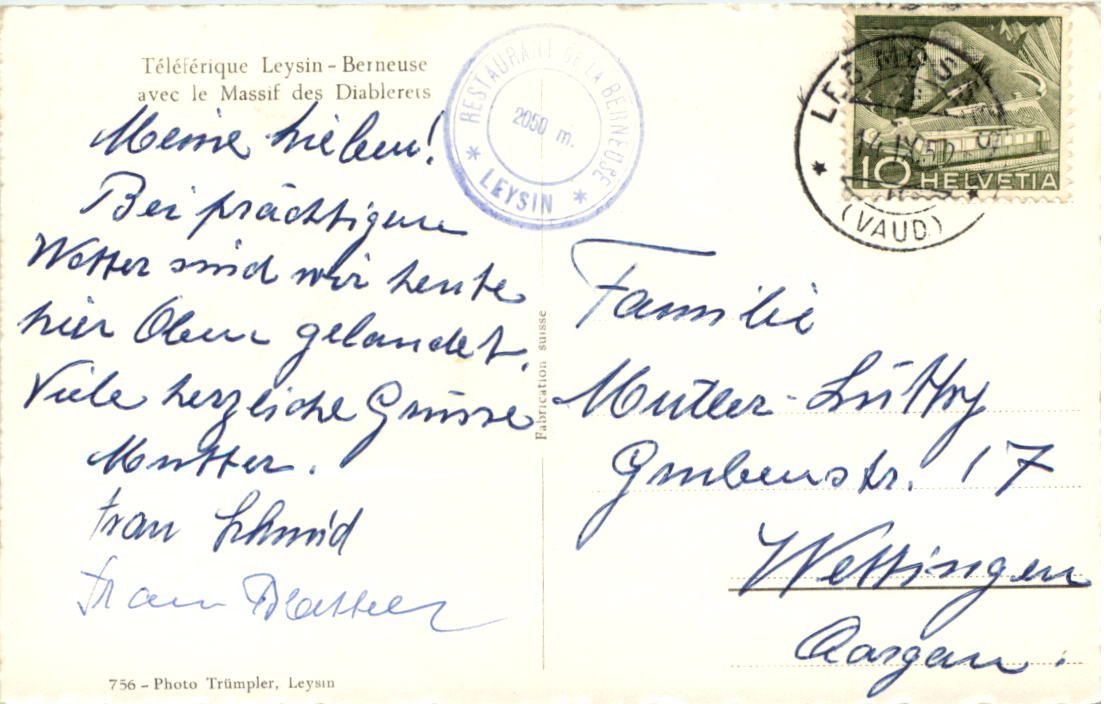 Téléférique Leysin - Berneuse
avec le Massif des Diablerets
RESTAURANT DE LA BERNEUSE
2050 m.
* LEYSIN *
10 HELVETIA
(VAUD)
Meine Lieben!
Bei prächtigem
Wetter sind wir heute
hier Oben gelandet.
Viele herzliche Grüsse
Mutter.
Frau Schmid
Frau
Fabrication suisse
Familie
Müller-Lüthy
Grubenstr. 17
Wettingen
Aargau.
756 - Photo Trümpler, Leysin